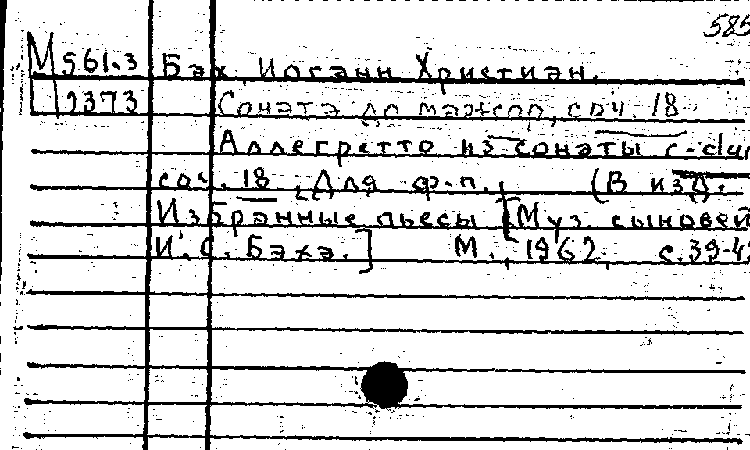 585
М 561.3 Бах, Иоганн Христиан.
2373 Соната до мажор, соч. 18
Аллегретто из сонаты c-dur
соч. 18. Для ф-п. (В изд.
Избранные пьесы [Муз. сыновей
И. С. Баха.] М., 1962, с.39-42